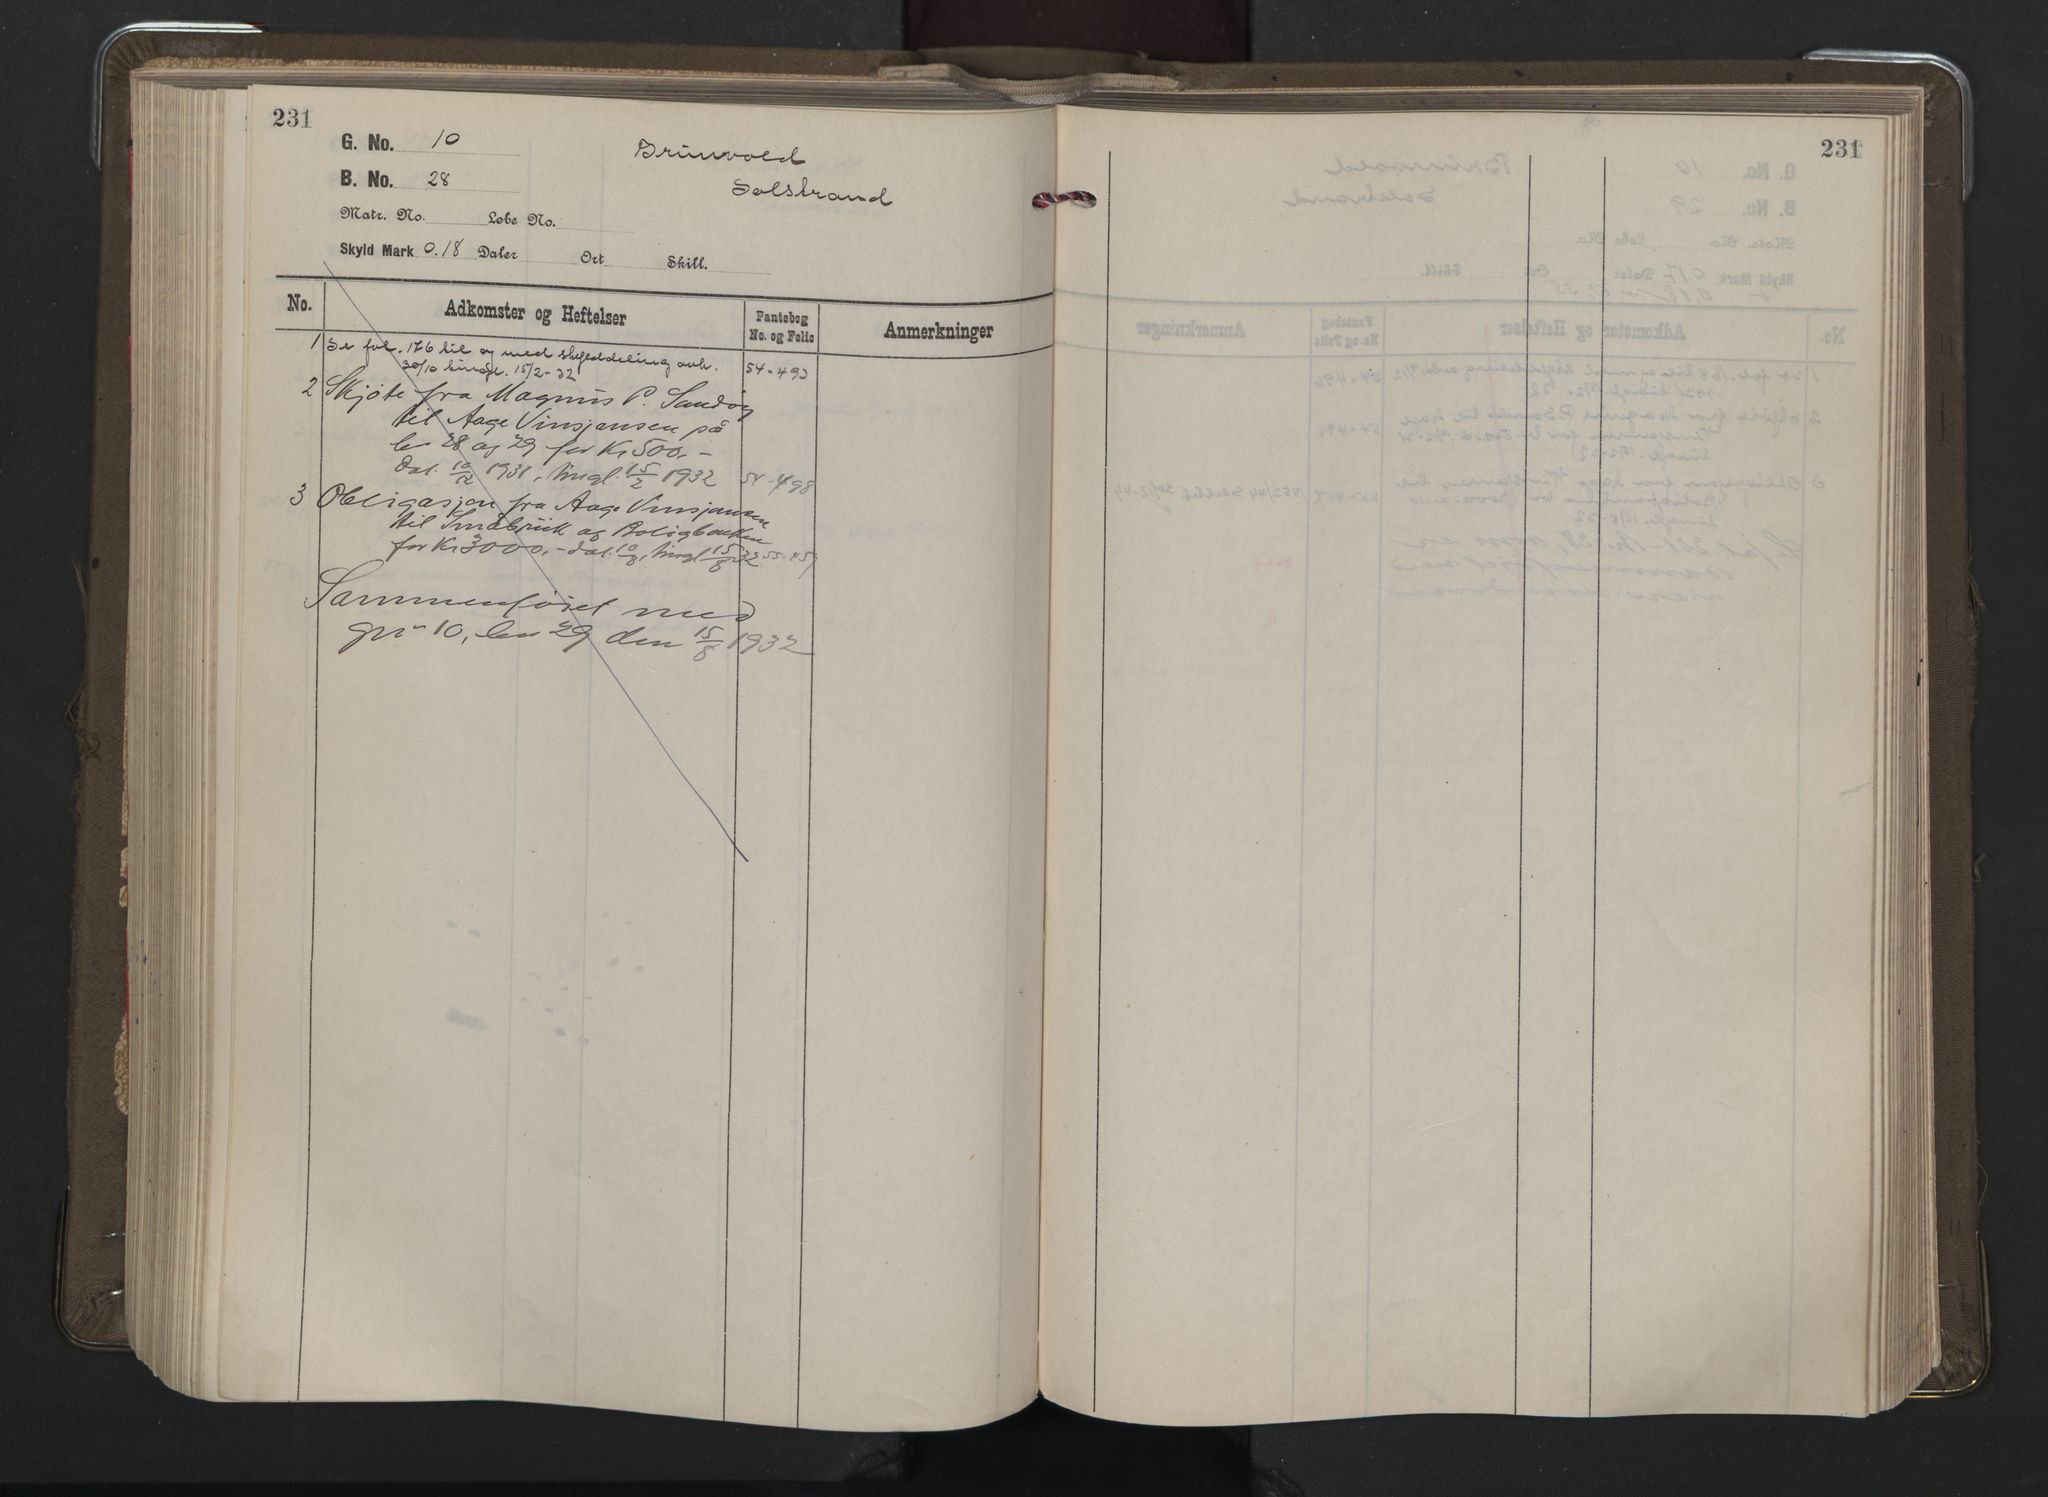 231
G. No. 10
Brunvold
B. No. 28
Solstrand
Matr. No. Løbe No.
Skyld Mark 0.18 Daler Ort Skill.
No. Adkomster og Heftelser Pantebog No. og Folio Anmerkninger
1 Se fol. 176 til og med skylddeling avh.
30/10 tinggl. 15/2-32 54-493
2 Skjøte fra Magnus P. Sandøy
til Aage Vinsjansen på
bnr 28 og 29 for Kr 500,-
Dat. 10/12 1931, tingl. 15/2 1932 54-498
3 Obligasjon fra Aage Vinsjansen
til Småbruk og Boligbanken
for Kr 3000,- dat. 10/8, tingl 15/8 32 55-457
Sammenføiet med
gnr 10, bnr 29 den 15/8 1932
231